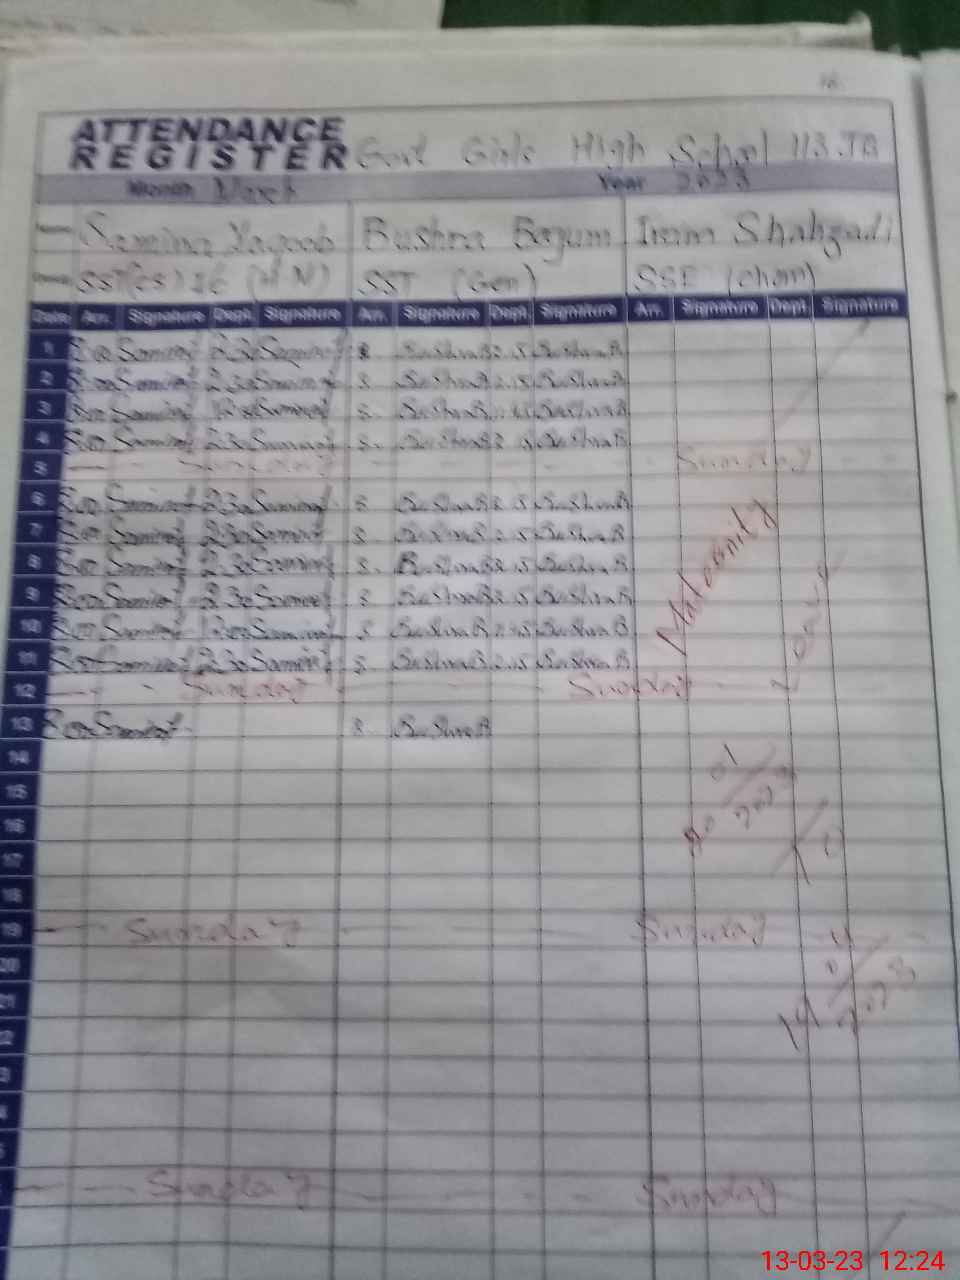 ATTENDANCE
REGISTER Govt Girls High School 113.JB
Month March Year 2023
Samina Yaqoob Bushra Begum Irum Shahzadi
SST(cs) 16 (H-N) SST (Gen) SSE (Chem)
Date Arr. Signature Dept. Signature Arr. Signature Dept. Signature Arr. Signature Dept. Signature
1 8:00 Samina 2.30 Samina 8. Bushra B 2.15 Bushra B
2 8:00 Samina 2.30 Samina 8. Bushra B 2.15 Bushra B
3 8:00 Samina Samina 8. Bushra B Bushra B
4 8:00 Samina 2.30 Samina 8. Bushra B Bushra B
5 Sunday Sunday
6 8:00 Samina 2.30 Samina 8 Bushra B 2.15 Bushra B
7 8:00 Samina 2.30 Samina 8. Bushra B 2.15 Bushra B
8 8:00 Samina 2.30 Samina 8. Bushra B 2.15 Bushra B
9 8:00 Samina 2.30 Samina 8 Bushra B 2.15 Bushra B
10 8:00 Samina Samina 8 Bushra B Bushra B
11 8:00 Samina 2.30 Samina 8. Bushra B 2.15 Bushra B
Maternity Leave
12 Sunday Sunday
13 8:00 Samina 8. Bushra B
14
15
16
2023
17
18
19 Sunday Sunday
20
21
2023
Sunday Sunday
13-03-23 12:24